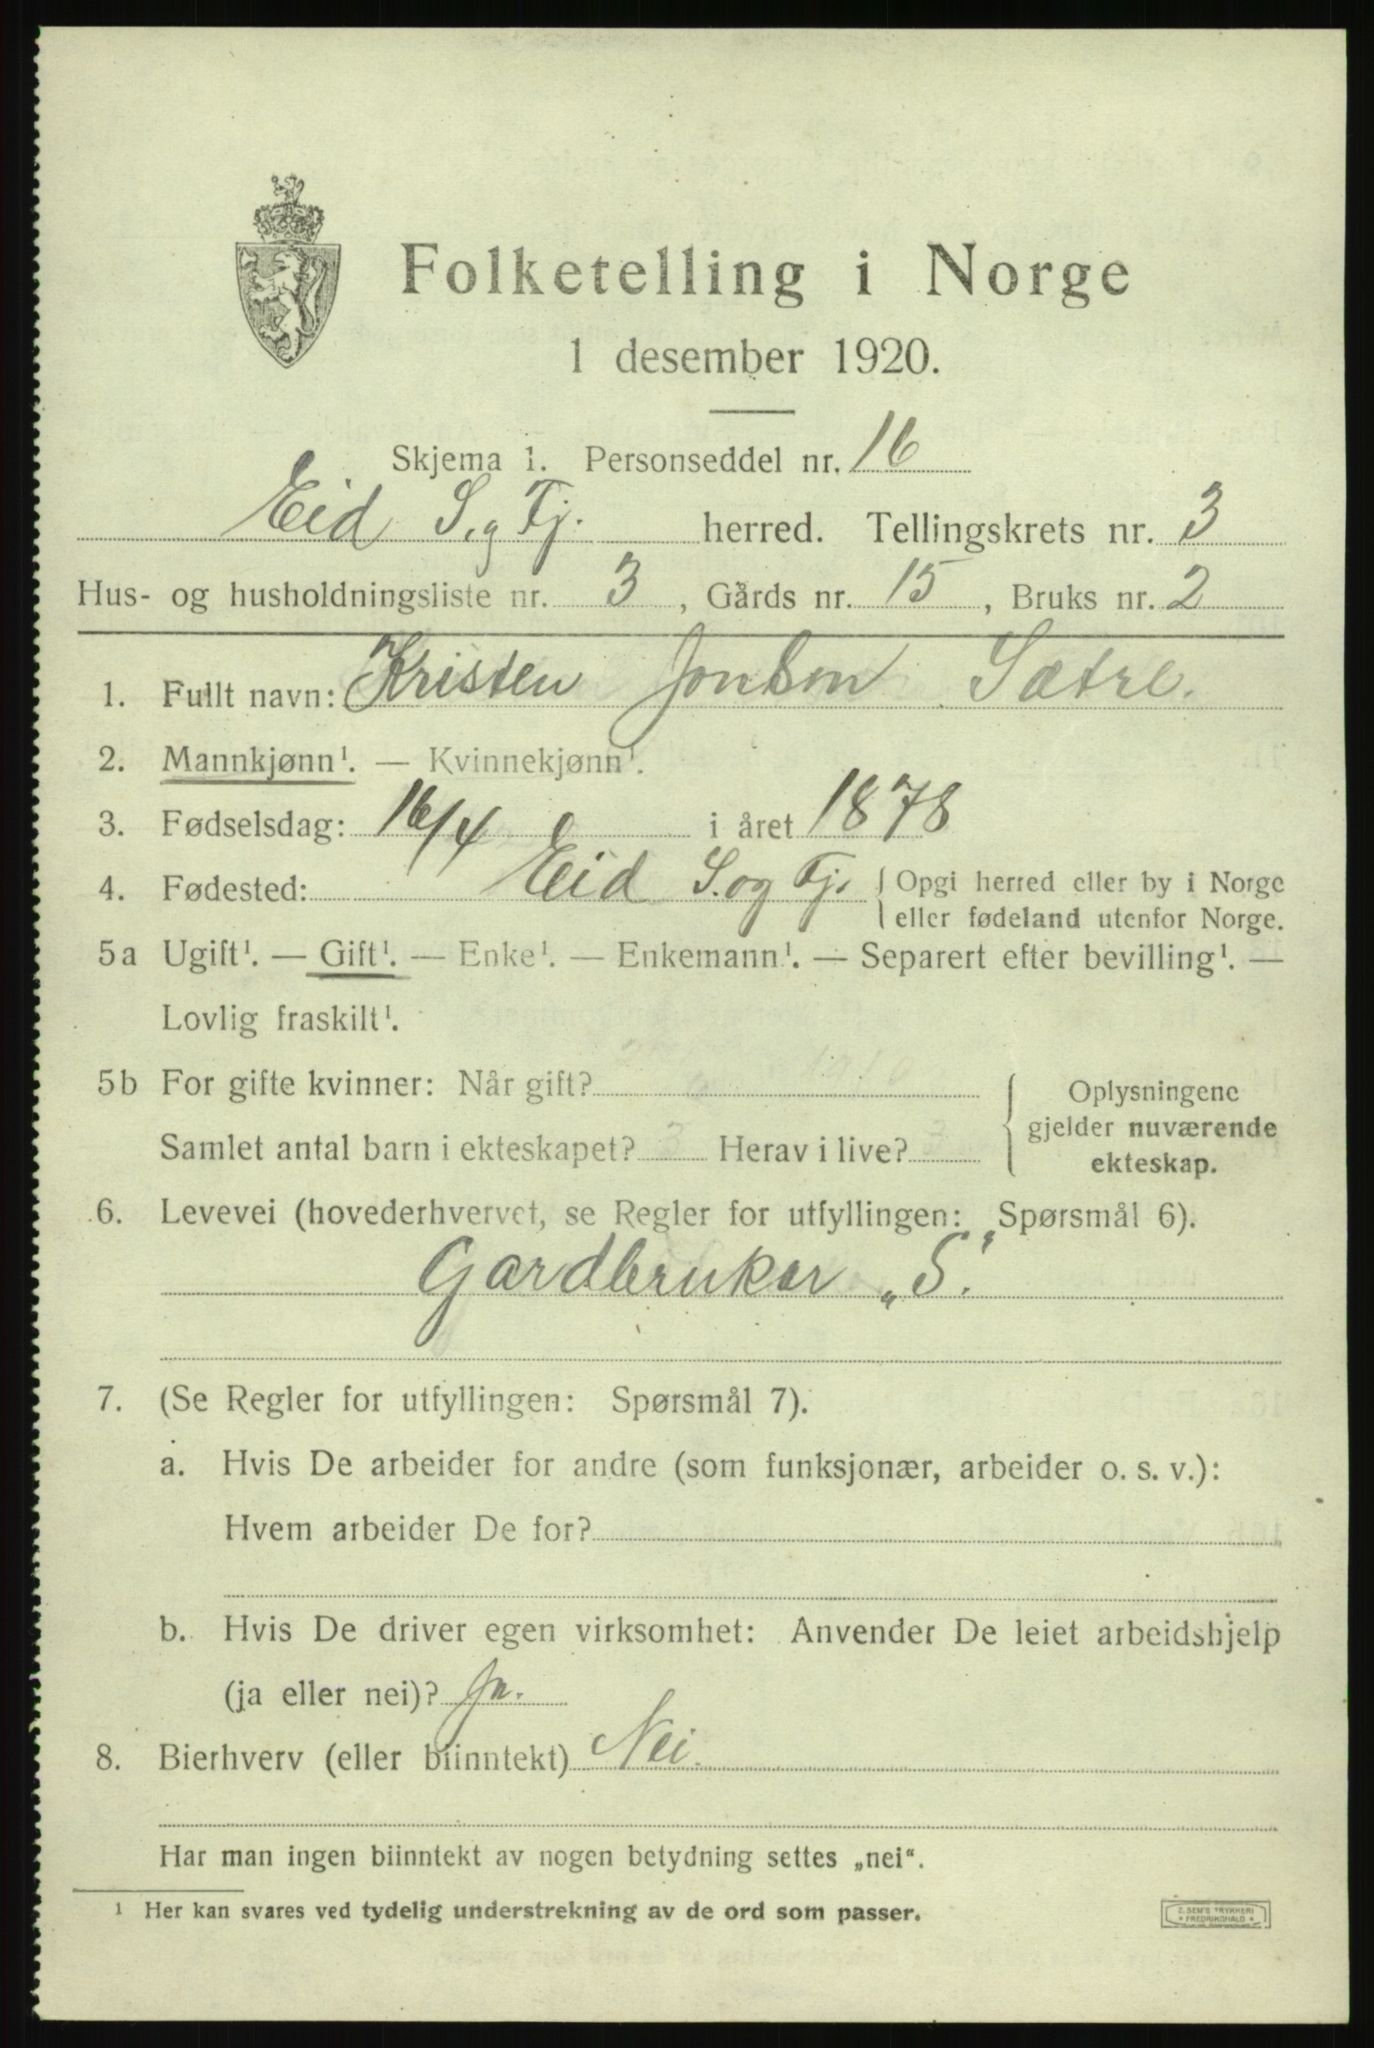 Folketelling i Norge
1 desember 1920.
Skjema 1. Personseddel nr. 16
Eid S. og Fj. herred. Tellingskrets nr. 3
Hus- og husholdningsliste nr. 3, Gårds nr. 15, Bruks nr. 2
1. Fullt navn: Kristen Jonson Sætre.
2. Mannkjønn¹. — Kvinnekjønn¹.
3. Fødselsdag: 16/4 i året 1878
4. Fødested: Eid S. og Fj. { Opgi herred eller by i Norge
eller fødeland utenfor Norge.
5a Ugift¹. — Gift¹. — Enke¹. — Enkemann¹. — Separert efter bevilling¹. —
Lovlig fraskilt¹.
5b For gifte kvinner: Når gift?
Samlet antal barn i ekteskapet? 3 Herav i live? 3
Oplysningene
gjelder nuværende
ekteskap.
6. Levevei (hovederhvervet, se Regler for utfyllingen: Spørsmål 6).
Gardbrukar „S".
7. (Se Regler for utfyllingen: Spørsmål 7).
a. Hvis De arbeider for andre (som funksjonær, arbeider o. s. v.):
Hvem arbeider De for?
b. Hvis De driver egen virksomhet: Anvender De leiet arbeidshjelp
(ja eller nei)? Ja.
8. Bierhverv (eller biinntekt) Nei.
Har man ingen biinntekt av nogen betydning settes „nei“.
¹ Her kan svares ved tydelig understrekning av de ord som passer.
E. SEM'S TRYKKERI
FREDRIKSHALD